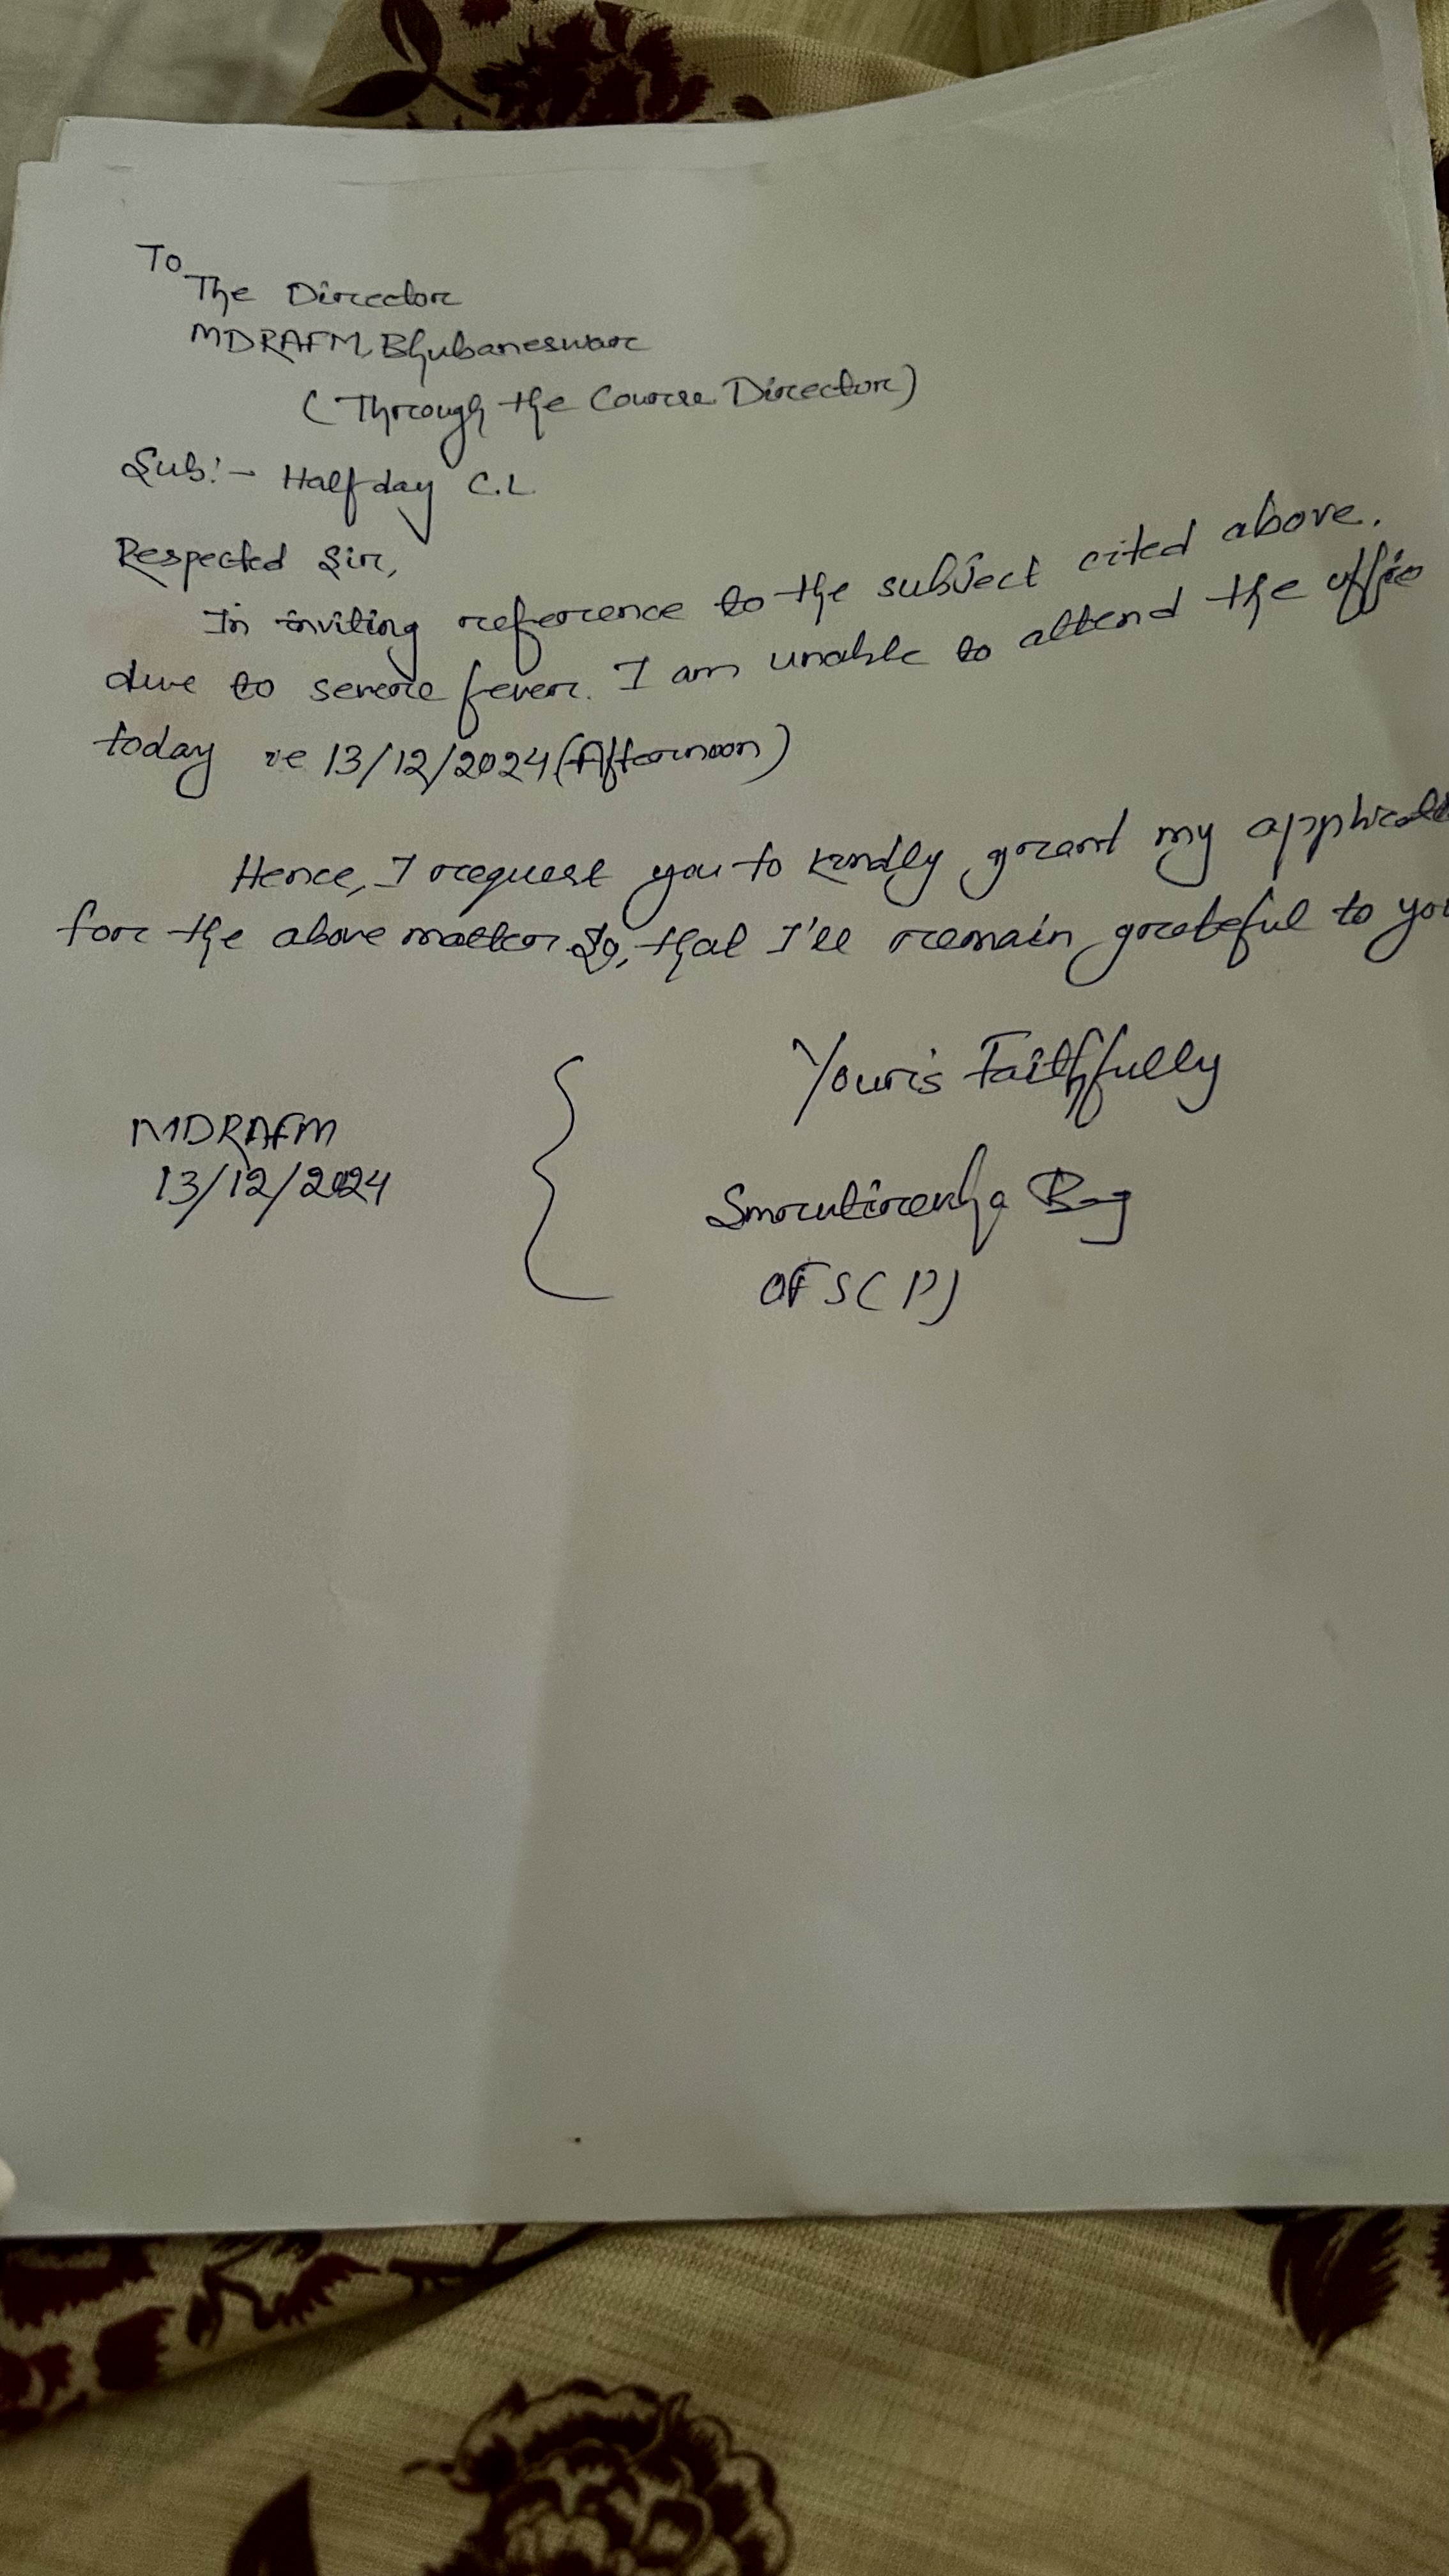 To
The Director
MDRAFM, Bhubaneswar
(Through the Course Director)
Sub:- Half day C.L.
Respected Sir,
In inviting reference to the subject cited above.
due to severe fever. I am unable to attend the office
today ie 13/12/2024 (Afternoon)
Hence, I request you to kindly grant my
for the above matter. So, that I'll remain grateful to you
Your's Faithfully
MDRAFM
13/12/2024
Smrutirekha Bag
OFS(P)